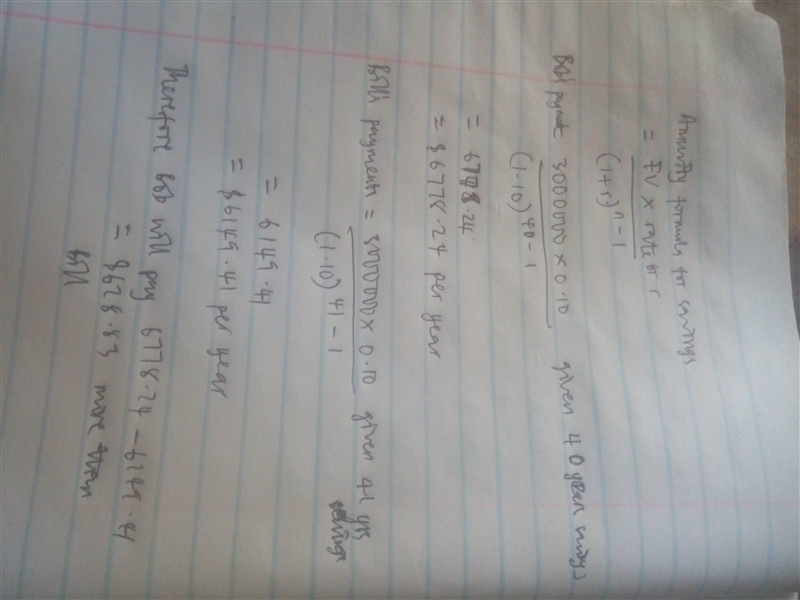 Annuity formula for savings
= FV x rate or r
(1+r)^n - 1
Bob's payment 3000000 x 0.10 given 40 years savings
(1.10)^40 - 1
= 6778.24
= $6778.24 per year
Bill's payments = 3000000 x 0.10 given 41 yrs savings
(1.10)^41 - 1
= 6149.41
= $6149.41 per year
Therefore Bob will pay 6778.24 - 6149.41
= $628.83 more than
Bill